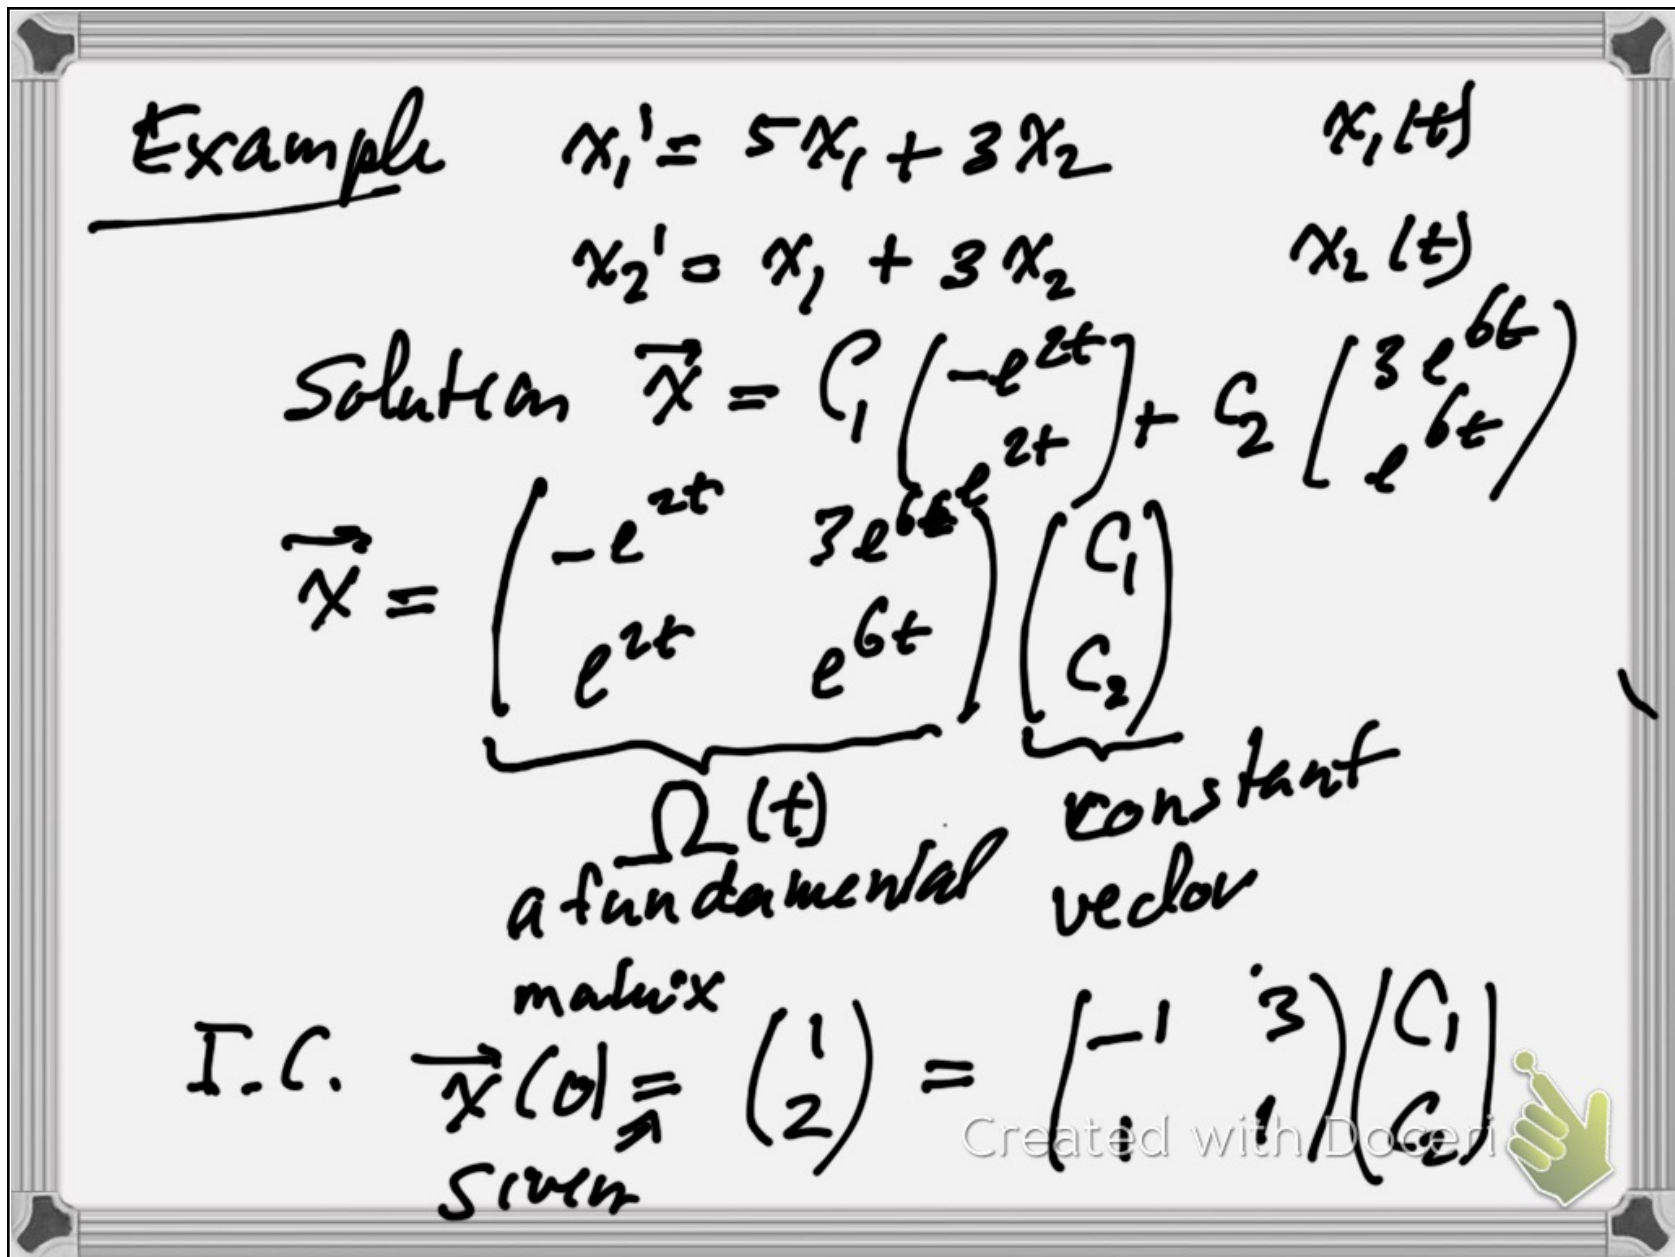 Example x₁' = 5x₁ + 3x₂ x₁(t)
x₂' = x₁ + 3x₂ x₂(t)
Solution x⃗ = C₁ (-e^{2t} e^{2t}) + C₂ (3e^{6t} e^{6t})
x⃗ = (-e^{2t} 3e^{6t} ; e^{2t} e^{6t}) (C₁ C₂)
Ω(t) constant
a fundamental vector
matrix
I.C. x⃗(0) = (1 2) = (-1 3 ; 1 1)(C₁ C₂)
given
Created with Doceri